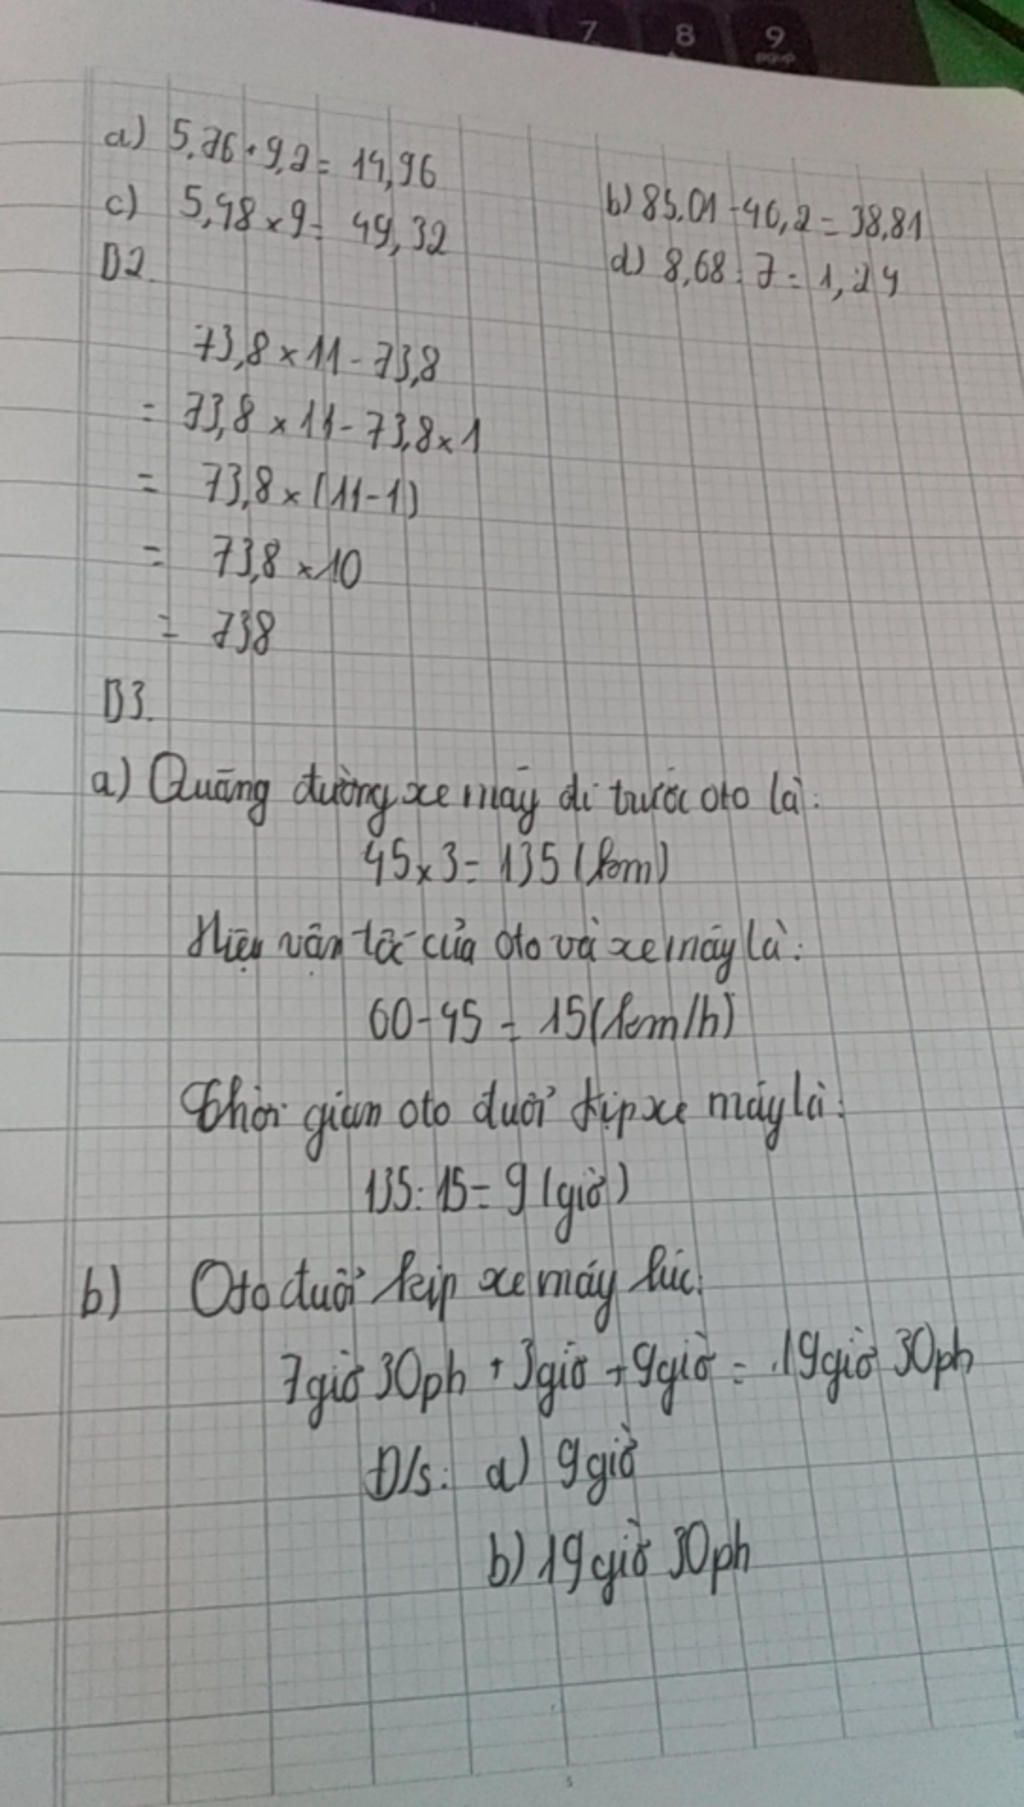 7 8 9
a) 5,76 + 9,2 = 14,96
b) 85,01 - 46,2 = 38,81
c) 5,48 x 9 = 49,32
d) 8,68 : 7 = 1,24
B2.
73,8 x 11 - 73,8
= 73,8 x 11 - 73,8 x 1
= 73,8 x (11 - 1)
= 73,8 x 10
= 738
B3.
a) Quãng đường xe máy đi trước oto là:
45 x 3 = 135 (km)
Hiệu vận tốc của oto và xe máy là:
60 - 45 = 15 (km/h)
Thời gian oto đuổi kịp xe máy là:
135 : 15 = 9 (giờ)
b) Oto đuổi kịp xe máy lúc:
7 giờ 30 ph + 3 giờ + 9 giờ = 19 giờ 30 ph
Đ/s: a) 9 giờ
b) 19 giờ 30 ph